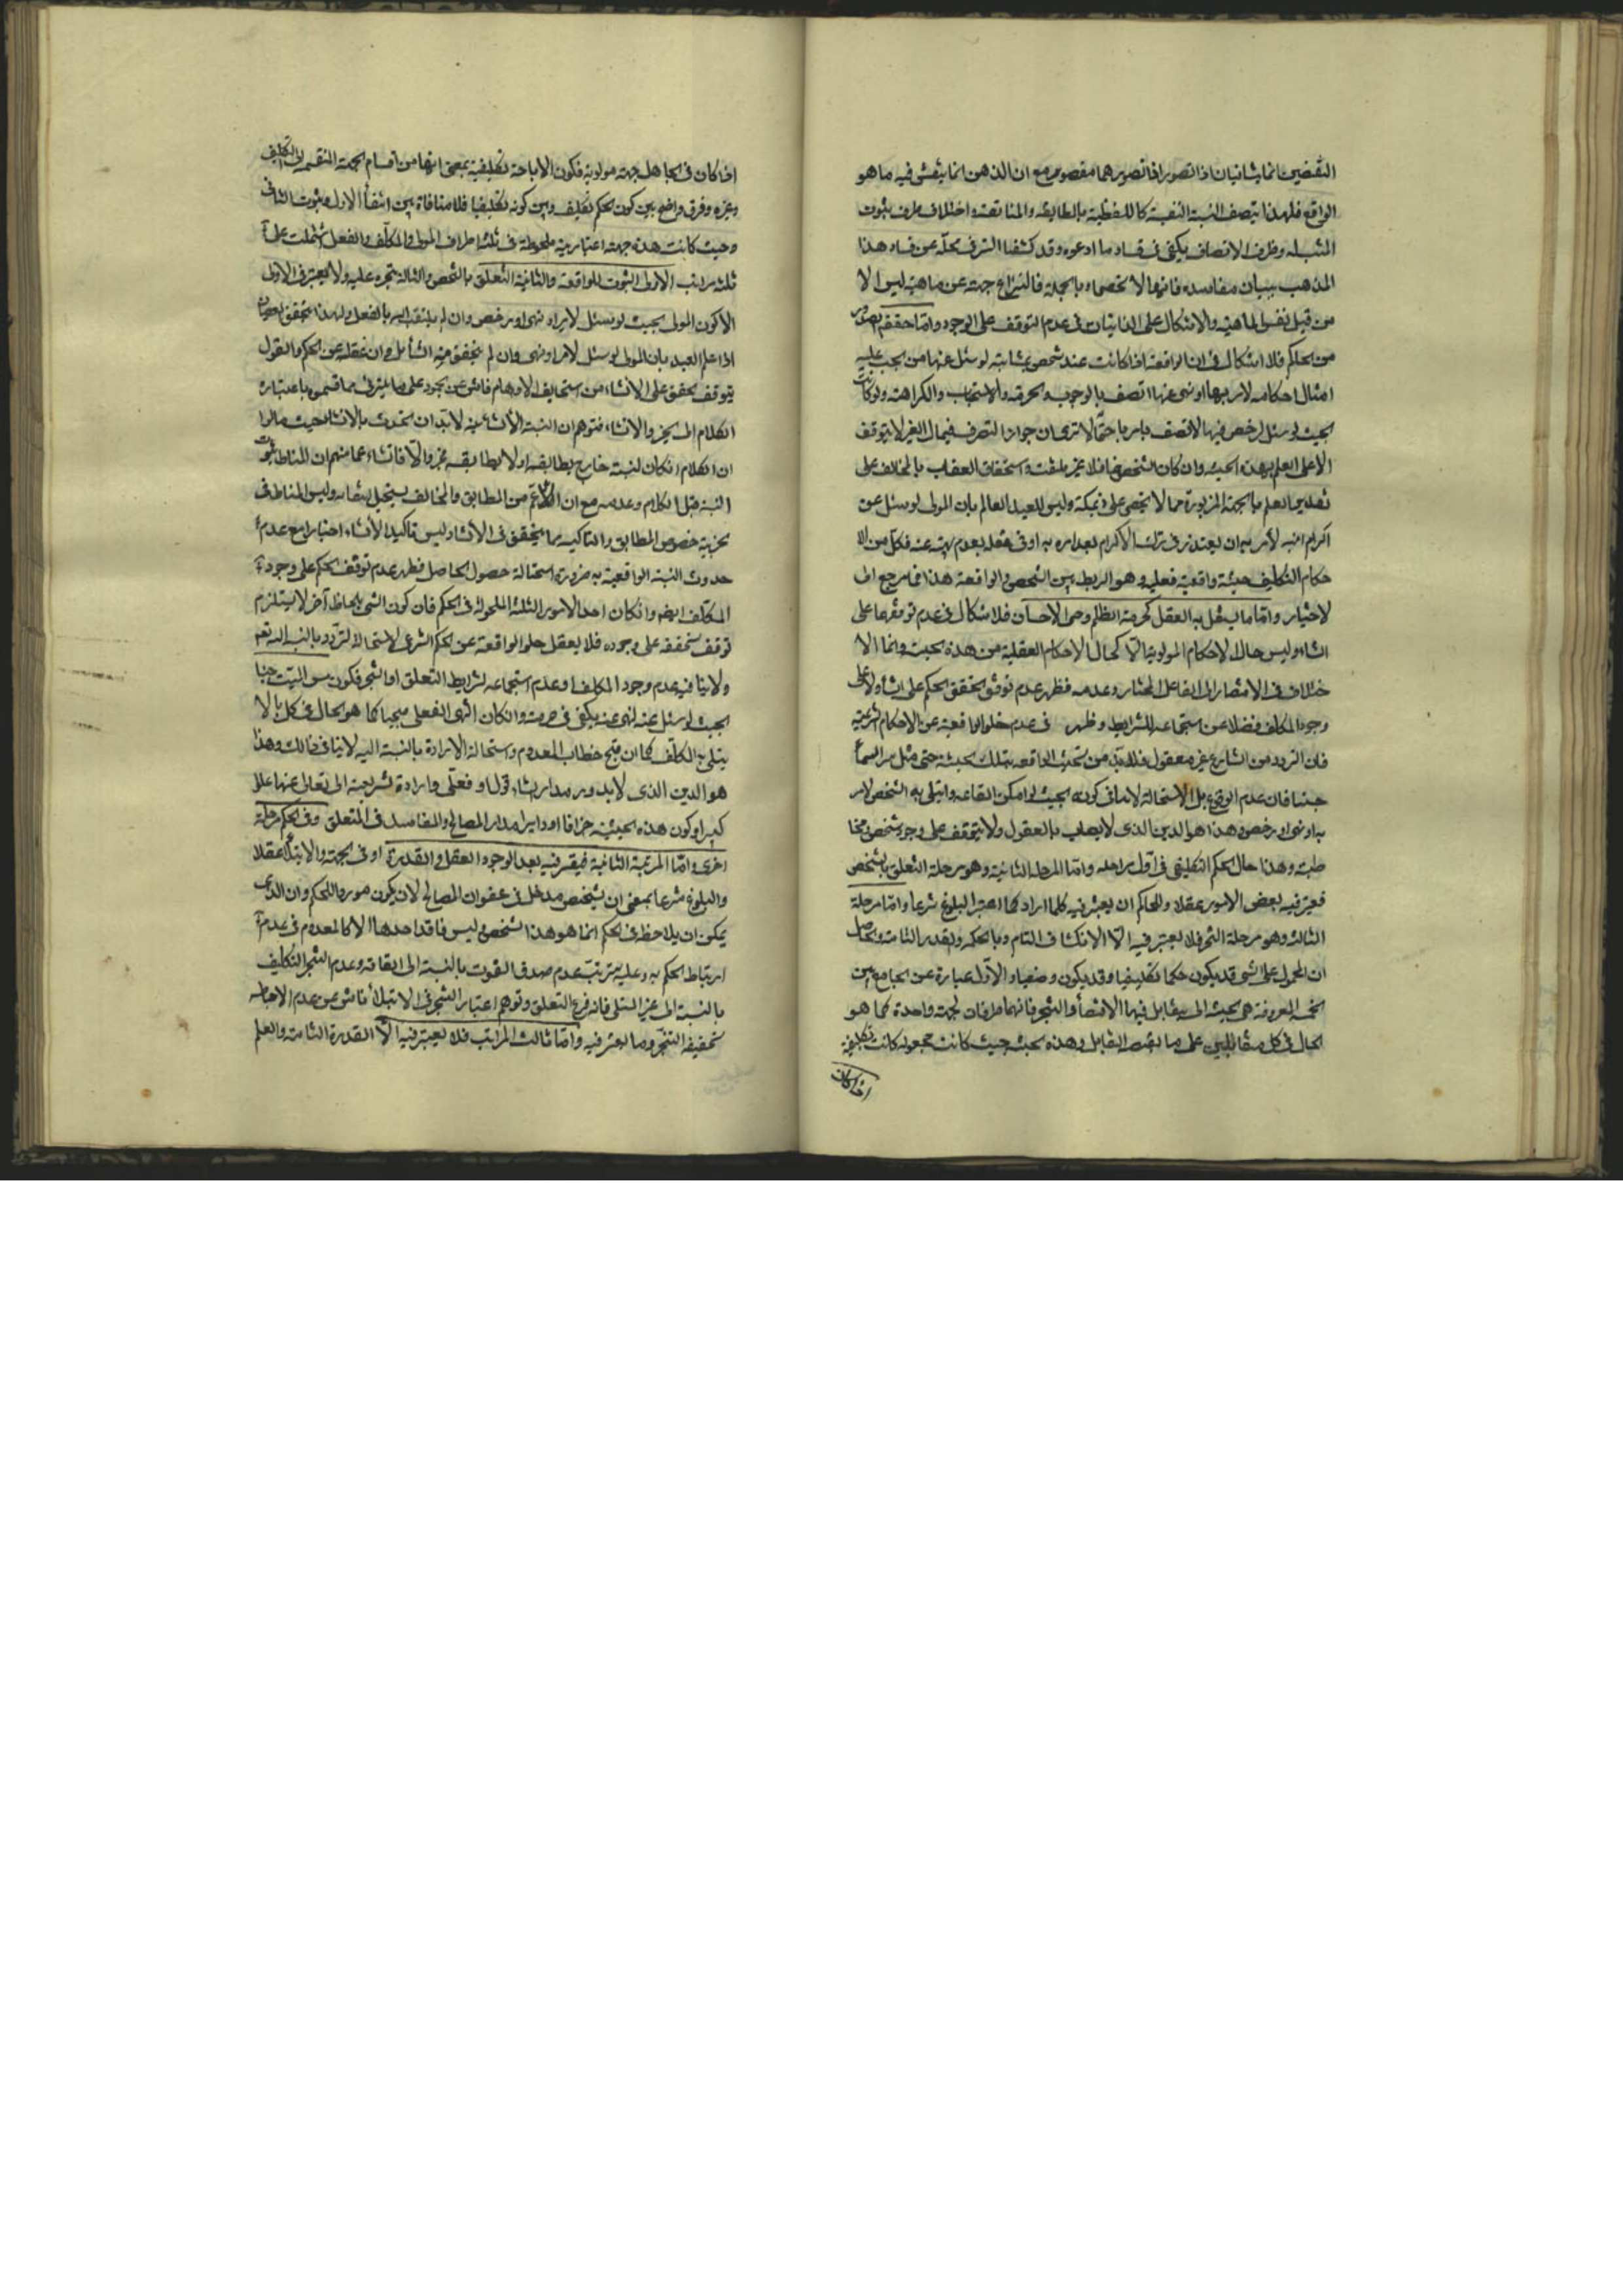 النقيضين انما يتنافيان اذا تصورا فاتصورهما مقصور مع ان الذهن انما ينقش فيه ما هو
الواقع فلهذا يتصف النسبة النفسية كاللفظية بالمطابقة والمناقضة واختلاف ظرف ثبوت
النسبة وظرف الاتصاف يكفى فى فساد ما ادعوه وقد كشفنا الستر فى محلّه عن فساد هذا
المذهب ببيان مفاسده فانها لا تحصى و بالجملة فانتزاع جهة عن ماهية ليس الا
من قبل نفس الماهية والاشكال على الذاتيات فى عدم التوقف على الوجود وامّا حقيقة
من الحكم فلا اشكال فى ان الواقعة اذا كانت عند شخص بمثابة لو سئل عنها من يجب عليه
امتثال احكامه لامر بها او نهى عنها اتصف بالوجوب والحرمة والاستحباب والكراهة ولو كانت
بحيث لو سئل لرخص فيها لاتصف بالاباحة الا ترى ان جواز التصرف فى مال الغير لا يتوقف
الا على العلم بهذه الحيثية وان كان الشخص غافلا غير ملتفت واستحقاق العقاب بالمخالفة على
تقدير العلم بالجهة المزبورة مما لا يخفى على ذى مسكة وليس للعبد العالم بان المولى لو سئل عن
اكرام ابنه لامر به ان يعتذر فى ترك الاكرام بعدم امره به او فى فعله بعدم نهيه عنه فكل من الا
حكام التكليف حيثية واقعية فعلية وهو الربط بين الشخص والواقعة هذا فيما مرجع الى
الاختيار وامّا ما يستقل به العقل كحرمة الظلم وحسن الاحسان فلا اشكال فى عدم توقفها على
انشاء وليس حال الاحكام المولوية الّا كحال الاحكام العقلية من هذه الحيث وانما الا
ختلاف فى الافتقار الى الفاعل المختار وعدمه فظهر عدم توقف تحقق الحكم على انشاء ولا على
وجود المكلف فضلا عن استجماعه للشرايط وظهر فى عدم خلو الواقعة عن الاحكام الشرعية
فان التردد من الشارع غير معقول فلا بد من تحيث الواقعة بتلك الحيثية حتى مثل مس السماء
جنبا فان عدم الوقوع بل الاستحالة لا ينافى كونه بحيث لو امكن ايقاعه وابتلى به الشخص لامر
به او نهى او رخص وهذا هو الدين الذى لا يصاب بالعقول ولا يتوقف على وجود شخص ومخا
طبته وهذا حال الحكم التكليفى فى اوّل مراحله وامّا المرحلة الثانية وهو مرحلة التعلق بالشخص
فيعتبر فيه بعض الامور عقلا وللحاكم ان يعتبر فيه كلما اراد كما اعتبر البلوغ شرعا وامّا مرحلة
الثالثة وهو مرحلة التنجز فلا يعتبر فيه الّا الانكشاف التام وبالحكم والقدرة التامة والحاصل
ان المحمول على الشىء قد يكون حكما تكليفيا وقد يكون وضعيا والاوّل عبارة عن الجامع بين
الخمسة المعروفة هى الحيثية التى يتقابل فيها الاقتضاء والتنجز فانهما طرفان لجهة واحدة كما هو
الحال فى كل متقابلين على ما يقتضيه التقابل وهذه الحيثية حيث كانت مجعولة كانت تكليفية
اذا كان
اذا كان فى الجاهل جهة مولوية فكون الاباحة تكليفية بمعنى انها من اقسام الجهة المنقسمة الى التكليف
وغيره وفرق واضح بين كون الحكم تكليف وبين كونه تكليفيا فلا منافاة بين انتفاء الاول وثبوت الثانى
وحيث كانت هذه جهة اعتبارية ملحوظة فى ثلثة اطراف المولى والمكلّف والفعل اشتملت على
ثلثة مراتب الاولى الثبوت للواقعة والثانية التعلق بالشخص والثالثة تنجزه عليه ولا يعتبر فى الاولى
الا كون المولى بحيث لو سئل لامر او نهى او رخص وان لم يلتفت اليه بالفعل ولهذا يتحقق العصيان
اذا علم العبد بان المولى لو سئل لامر او نهى وان لم يتحقق منه انشاء بل وان غفل عن الحكم والقول
بتوقف تحققه على الانشاء من استحاله الاوهام فاش عن الجمود على ما يترائى مما قسموه باعتباره
الكلام الى الخبر والانشاء فتوهم ان النسبة الانشائية لا بدّ ان تحدث بالانشاء حيث قالوا
ان الكلام ان كان لنسبته خارج يطابقه او لا يطابقه فخبر والّا فانشاء زعما منهم ان المناط ثبوت
النسبة قبل الكلام وعدمه مع ان الاعمّ من المطابق والمخالف يستحيل انتفائه وليس المناط فى
خبرية خصوص المطابق والتاكيد مما يتحقق فى الانشاء وليس تاكيد الانشاء اخبارا مع عدم
حدوث النسبة الواقعية به ضرورة استحالة حصول الحاصل فظهر عدم توقف الحكم على وجود
المكلّف ايضا وان كان احد الامور الثلثة الملحوظة فى الحكم فان كون الشىء بلحاظ آخر لا يستلزم
توقف تحققه على وجوده فلا يعقل خلو الواقعة عن الحكم الشرعى لاستحالة التردد بالنسبة اليه تعالى
ولا ينافيه عدم وجود المكلف او عدم استجماعه لشرايط التعلق او التنجز فكون مس الميت جنبا
بحيث لو سئل عنه لنهى عنه يكفى فى حرمته وان كان النهى الفعلى قبيحا كما هو الحال فى كل ما لا
يبتلى به المكلّف كما ان قبح خطاب المعدوم واستحالة الارادة بالنسبة اليه لا ينافى ذلك وهذا
هو الدين الذى لا يدور مدار انشاء قولى او فعلى وارادة تشريعية الى تعالى عنها علوا
كبيرا وكون هذه الحيثية جزافا او دايرا مدار المصالح والمفاسد فى المتعلق وفى الحكم مرحلة
اخرى وامّا المرتبة الثانية فيعتبر فيه بعد الوجود العقل والقدرة او فى الجهة والابتلاء عقلا
والبلوغ شرعا بمعنى ان لشخص مدخل فى عنوان المصالح لان يكون موردا للحكم وان الذى
يمكن ان يلاحظ فى الحكم انما هو هذا الشخص وليس فاقد احدها الا كالمعدوم فى عدم
ارتباط الحكم به وعليه يترتب عدم صدق الفوت بالنسبة الى الفاقد وعدم التنجز التكليف
بالنسبة الى غير المبتلى فانه فرع التعلق وتوهم اعتبار التنجز فى الابتلاء ناش عن عدم الاحاطة
بحقيقة التنجز وما يعتبر فيه وامّا ثالث المراتب فلا يعتبر فيه الّا القدرة التامة والعلم